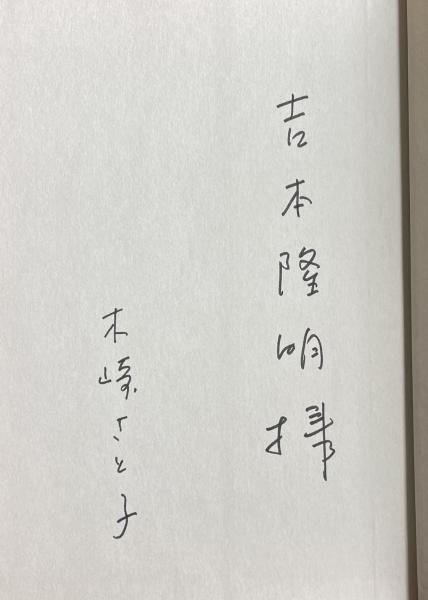 吉本隆明様
木崎さと子